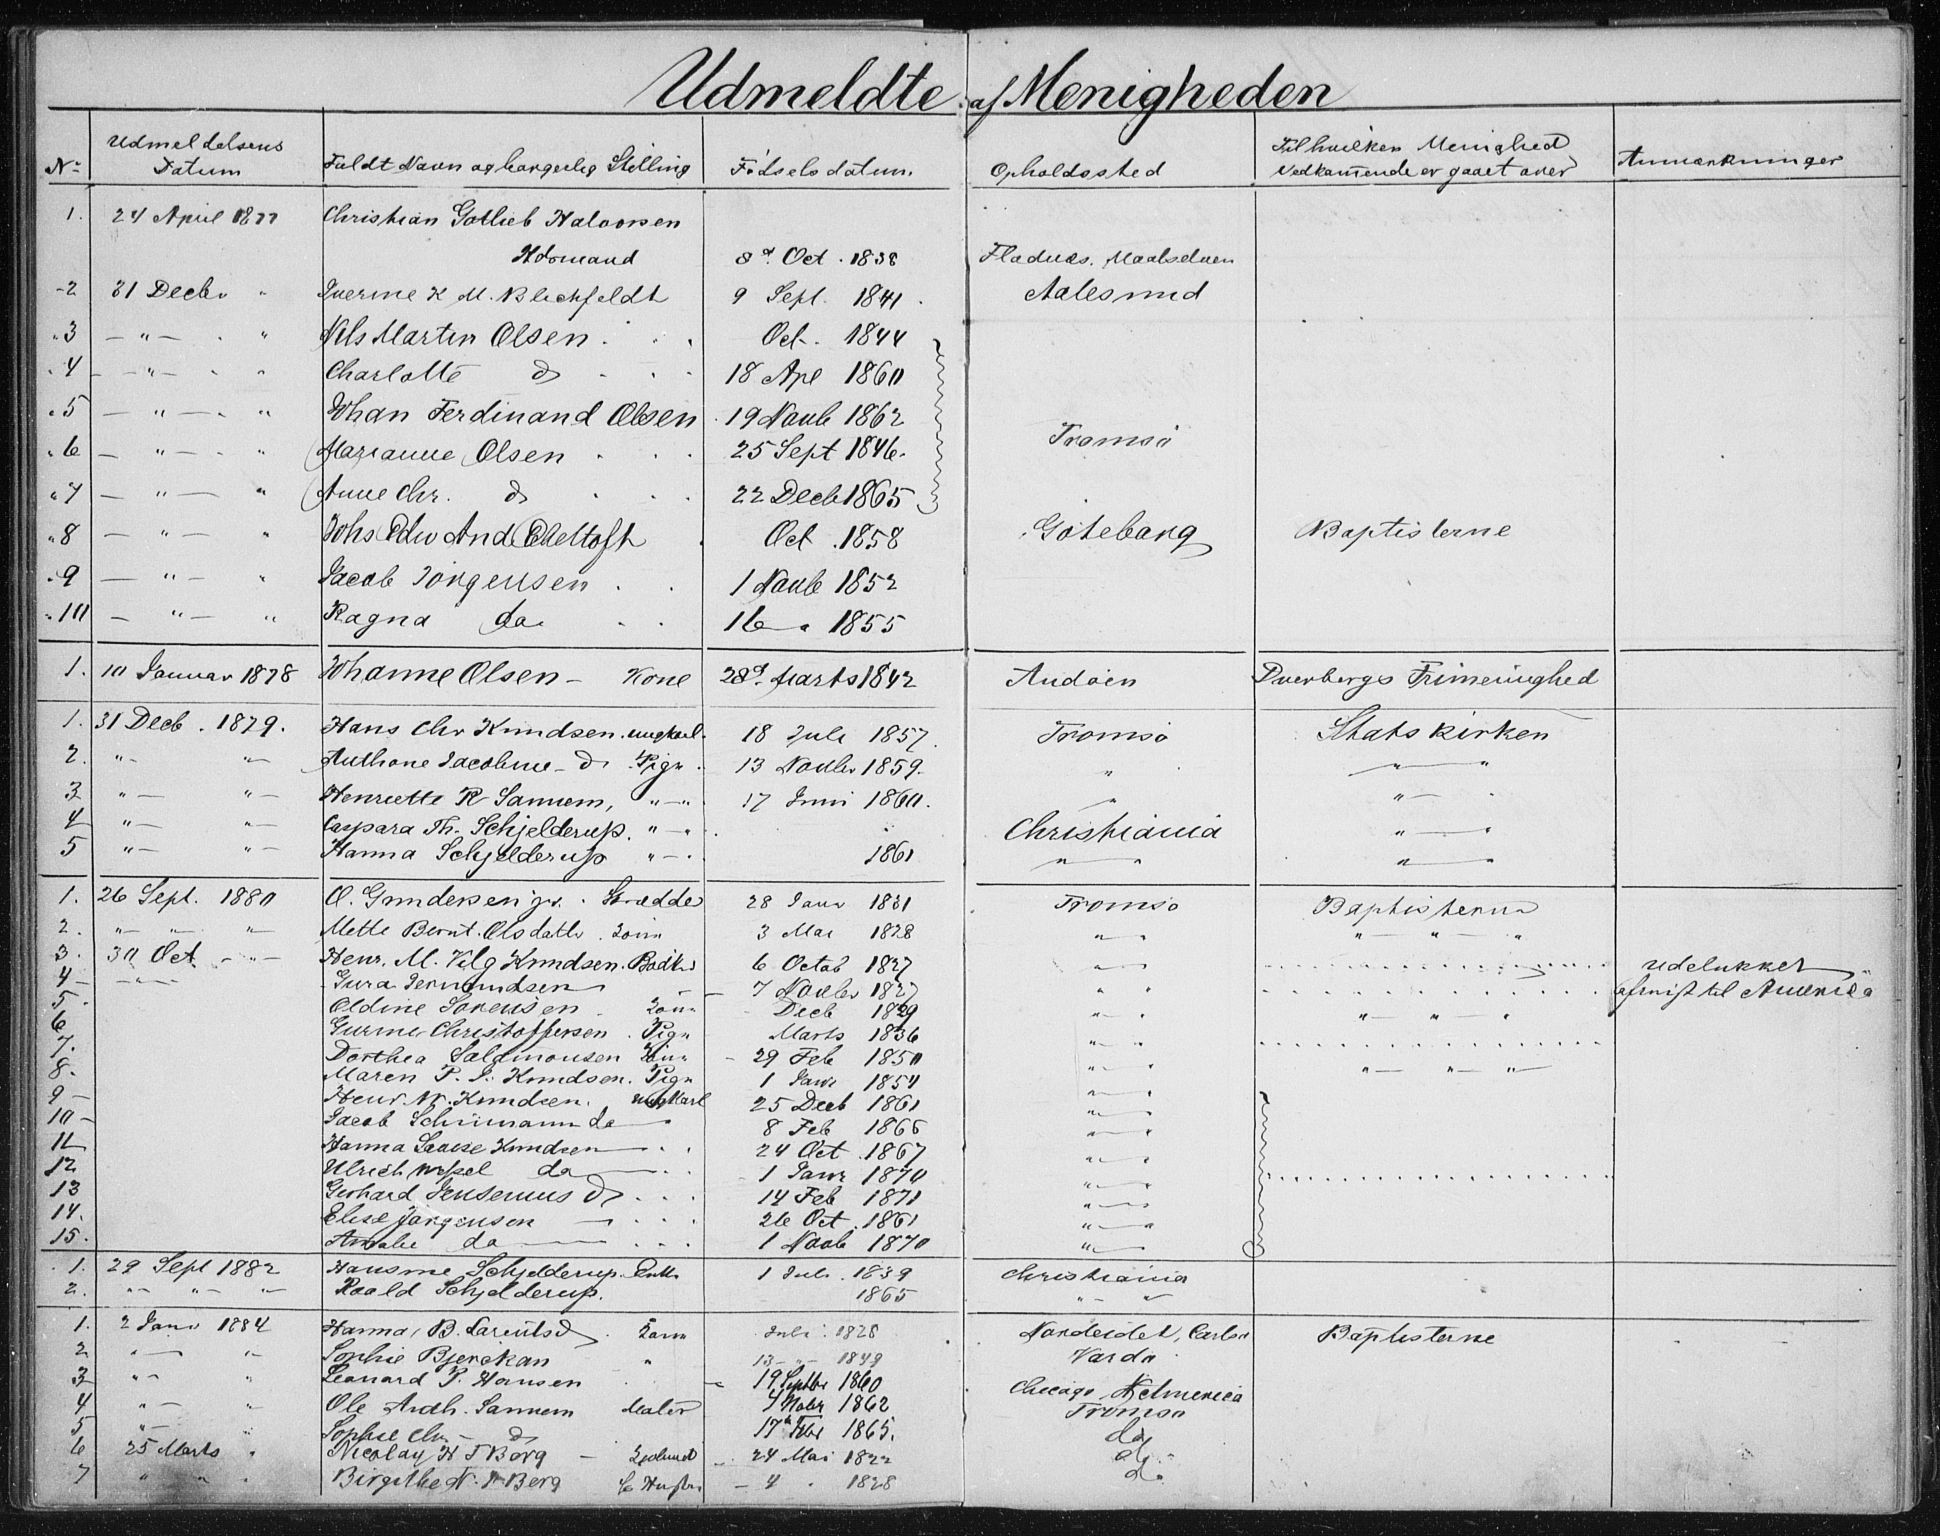 Udmeldte af Menigheden
No Udmeldelsens Datum Fuldt Navn og borgerlig Stilling Fødselsdatum. Opholdssted Til hvilken Menighed Vedkommende er gaaet over Anmærkninger
1. 24 April 1877 Christian Gotlieb Halvorsen
8d. Oct. 1838 Maalselven
2 31 Decbr " Iverine K M. Blichfeldt 9 Sept. 1841. Aalesund
3 — " — . " Nils Martin Olsen . . . Oct. 1844
4 — " — . " Charlotte do . . . 18 Apl 1860
5 — " — . " Johan Ferdinand Olsen . 19 Novb 1862
6 — " — . " Marianne Olsen . . . 25 Sept 1846. Tromsø
7 — " — " Anne Chr. do . . . 22 Decb 1865
8 — " — " Johs Edw And Oldtoft . Oct. 1858 Gøteborg Baptisterne
9 — " — " Jacob Jørgensen . . 1 Novb 1852
10 — " — " Ragna do . . 16 " 1855
1. 10 Januar 1878 Johanne Olsen – Kone 28d. Marts 1842 Andøen Dverbergs Frimenighed
1. 31 Decb. 1879. Hans Chr Knudsen. ungkarl. 18 Juli 1857. Tromsø Statskirken
2. " – " – Anthone Jacobine – do Pige. 13 Novbr 1859. " " — "
3 " – " – Henriette R Sannem, " – " 17 Juni 1860. " " — "
4 " – " – Caspara Th. Schjelderup. " – " Christiania " — "
5 " – " – Hanna Schjelderup " – . 1861 " — " " — "
1. 26 Sept. 1880 O. Gundersen jr. . Skrædder 28 Janr 1831 Tromsø Baptisterne
2. " – " – " – Mette Bernt. Olsdatter . Kone 3 Mai 1828 " — " " — " — "
3. 30 Oct – " – Henr. M. Vilg Knudsen. Bødker 6 Octob 1827 " — " udelukket
4 – — " — 7 Novbr 1827 " " afreist til America
5. Oldine Sørensen Kone Decb 1829 " — " " — " — "
6 Christoffersen . Pige Marts 1836 " — "
7. Dorthea Salamonsen Kone – 29 Feb 1850 " — " " — " — "
8. Maren P. J. Knudsen. Pige 1 Janr 1854 " — "
9 – Henr. W. Knudsen. ungkarl 25 Decb 1861 " — "
10 – Jacob Schümann do — 8 Feb 1866 " — "
11 Hanna Louise Knudsen — . . 24 Oct. 1867 " — "
12 Ulrich do — . . 1 Janr 1870 " — "
13 Gerhard Jensenius do . . . 14 Feb 1871 " — "
14. Elise Jørgensen — . . . 26 Oct. 1861 " — "
15. Amalie do — . . . 1 Novb 1870 " —
1. 29 Sept 1882 Hansine Schjelderup. Enke 1 Juli. 1839 Christiania
2. " – " – " – Roald Schjelderup. 1865 " – "
1. 2 Janr 1884 Hanna, B. Larentsd. Kone Juli. 1828 Nordeidet, Carlsø Baptisterne
2 " — " – Sophie Bjerckan " 13 – " – 1849 Vardø
3 " – " " Leonard P. Hansen – 19 Septbr 1860 Chicago, N. America
4 " – " " Ole Andh. Sannem Maler 4 Novbr 1862 Tromsø
5 " – " Sophie Chr – do 17 Febr 1865. do
6 25 Marts " Nicolay H T Borg – . 24 Mai 1822 do
7 " " " Birgithe N. Berg – 4 " 1828 do